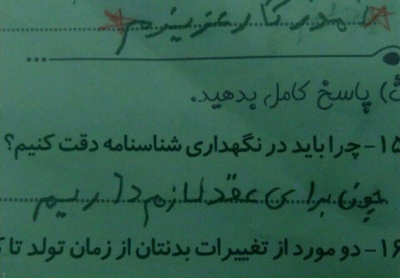 مادر تا
ث) پاسخ کامل بدهید.
۱۵- چرا باید در نگهداری شناسنامه دقت کنیم؟
چون برای عقد لازم داریم
۱۶- دو مورد از تغییرات بدنتان از زمان تولد تا